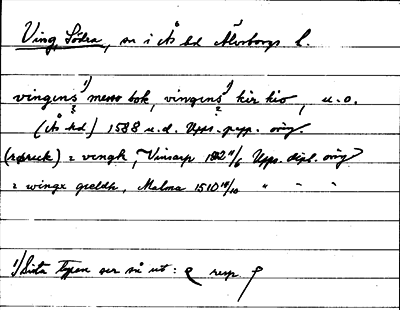 Ving, Södra, sn i Ås hd Älvsborgs l.
vingens¹⁾ messo bok, vingens¹⁾ kir kio, u.o.
(Ås hd) 1588 u.d. Upps. orig.
= vengh, Vinsarp Upps. dipl. orig
= wingx greldh, Malma 1510 18/10 " " "
¹⁾ Sista typen ser så ut: resp.